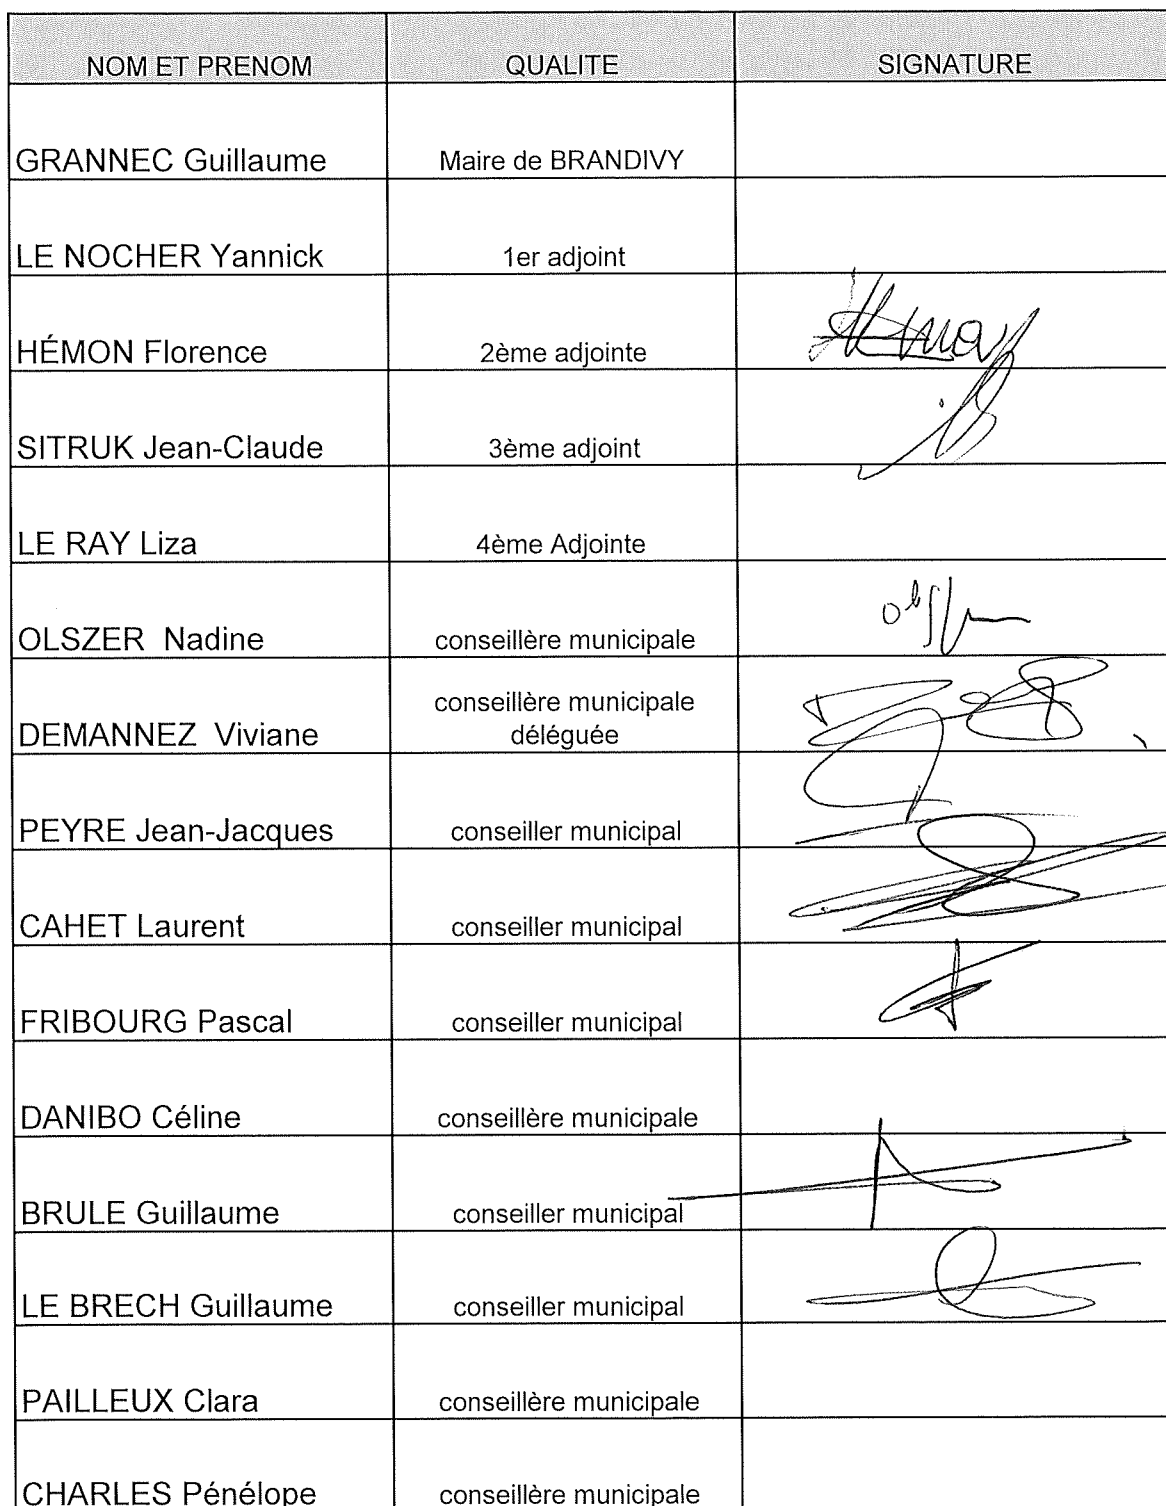 NOM ET PRENOM QUALITE SIGNATURE
GRANNEC Guillaume Maire de BRANDIVY
LE NOCHER Yannick 1er adjoint
HÉMON Florence 2ème adjointe
SITRUK Jean-Claude 3ème adjoint
LE RAY Liza 4ème Adjointe
OLSZER Nadine conseillère municipale
DEMANNEZ Viviane conseillère municipale
déléguée
PEYRE Jean-Jacques conseiller municipal
CAHET Laurent conseiller municipal
FRIBOURG Pascal conseiller municipal
DANIBO Céline conseillère municipale
BRULE Guillaume conseiller municipal
LE BRECH Guillaume conseiller municipal
PAILLEUX Clara conseillère municipale
CHARLES Pénélope conseillère municipale